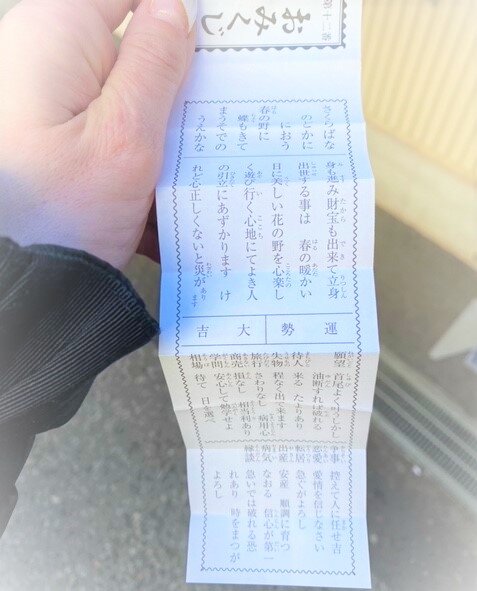 第十二番
おみくじ
さくらばな
のどかに
におう
春の野に
蝶もきて
まうそでの
うえかな
身も進み財宝も出来て立身
出世する事は 春の暖かい
日に美しい花の野を心楽し
く遊び行く心地にてよき人
の引立にあずかります け
れど心正しくないと災があります
運勢
大吉
願望 首尾よく叶うしかし
油断すれば破れる
待人 来る たよりあり
失物 程なく出て来ます
旅行 さわりなし 病用心
商売 損なし 相当利あり
学問 安心して勉学せよ
相場 待て 日を選べ
争事 控えて人に任せ吉
恋愛 愛情を信じなさい
転居 急ぐがよろし
出産 安産 順調に育つ
病気 なおる 信心が第一
縁談 急いでは破れる恐
れあり 時をまつが
よろし